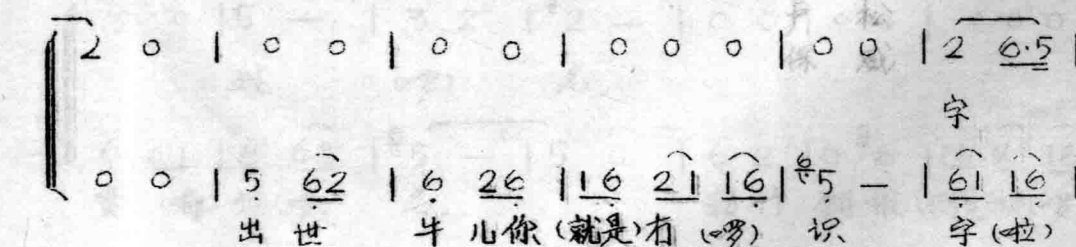 2 0 | 0 0 | 0 0 | 0 0 0 | 0 0 | 2 6·5
字
0 0 | 5 62 | 6 26 | 16 21 16 | 6 5 — | 61 16
出 世 牛 儿 你 (就是) 有 (啰) 识 字 (啦)